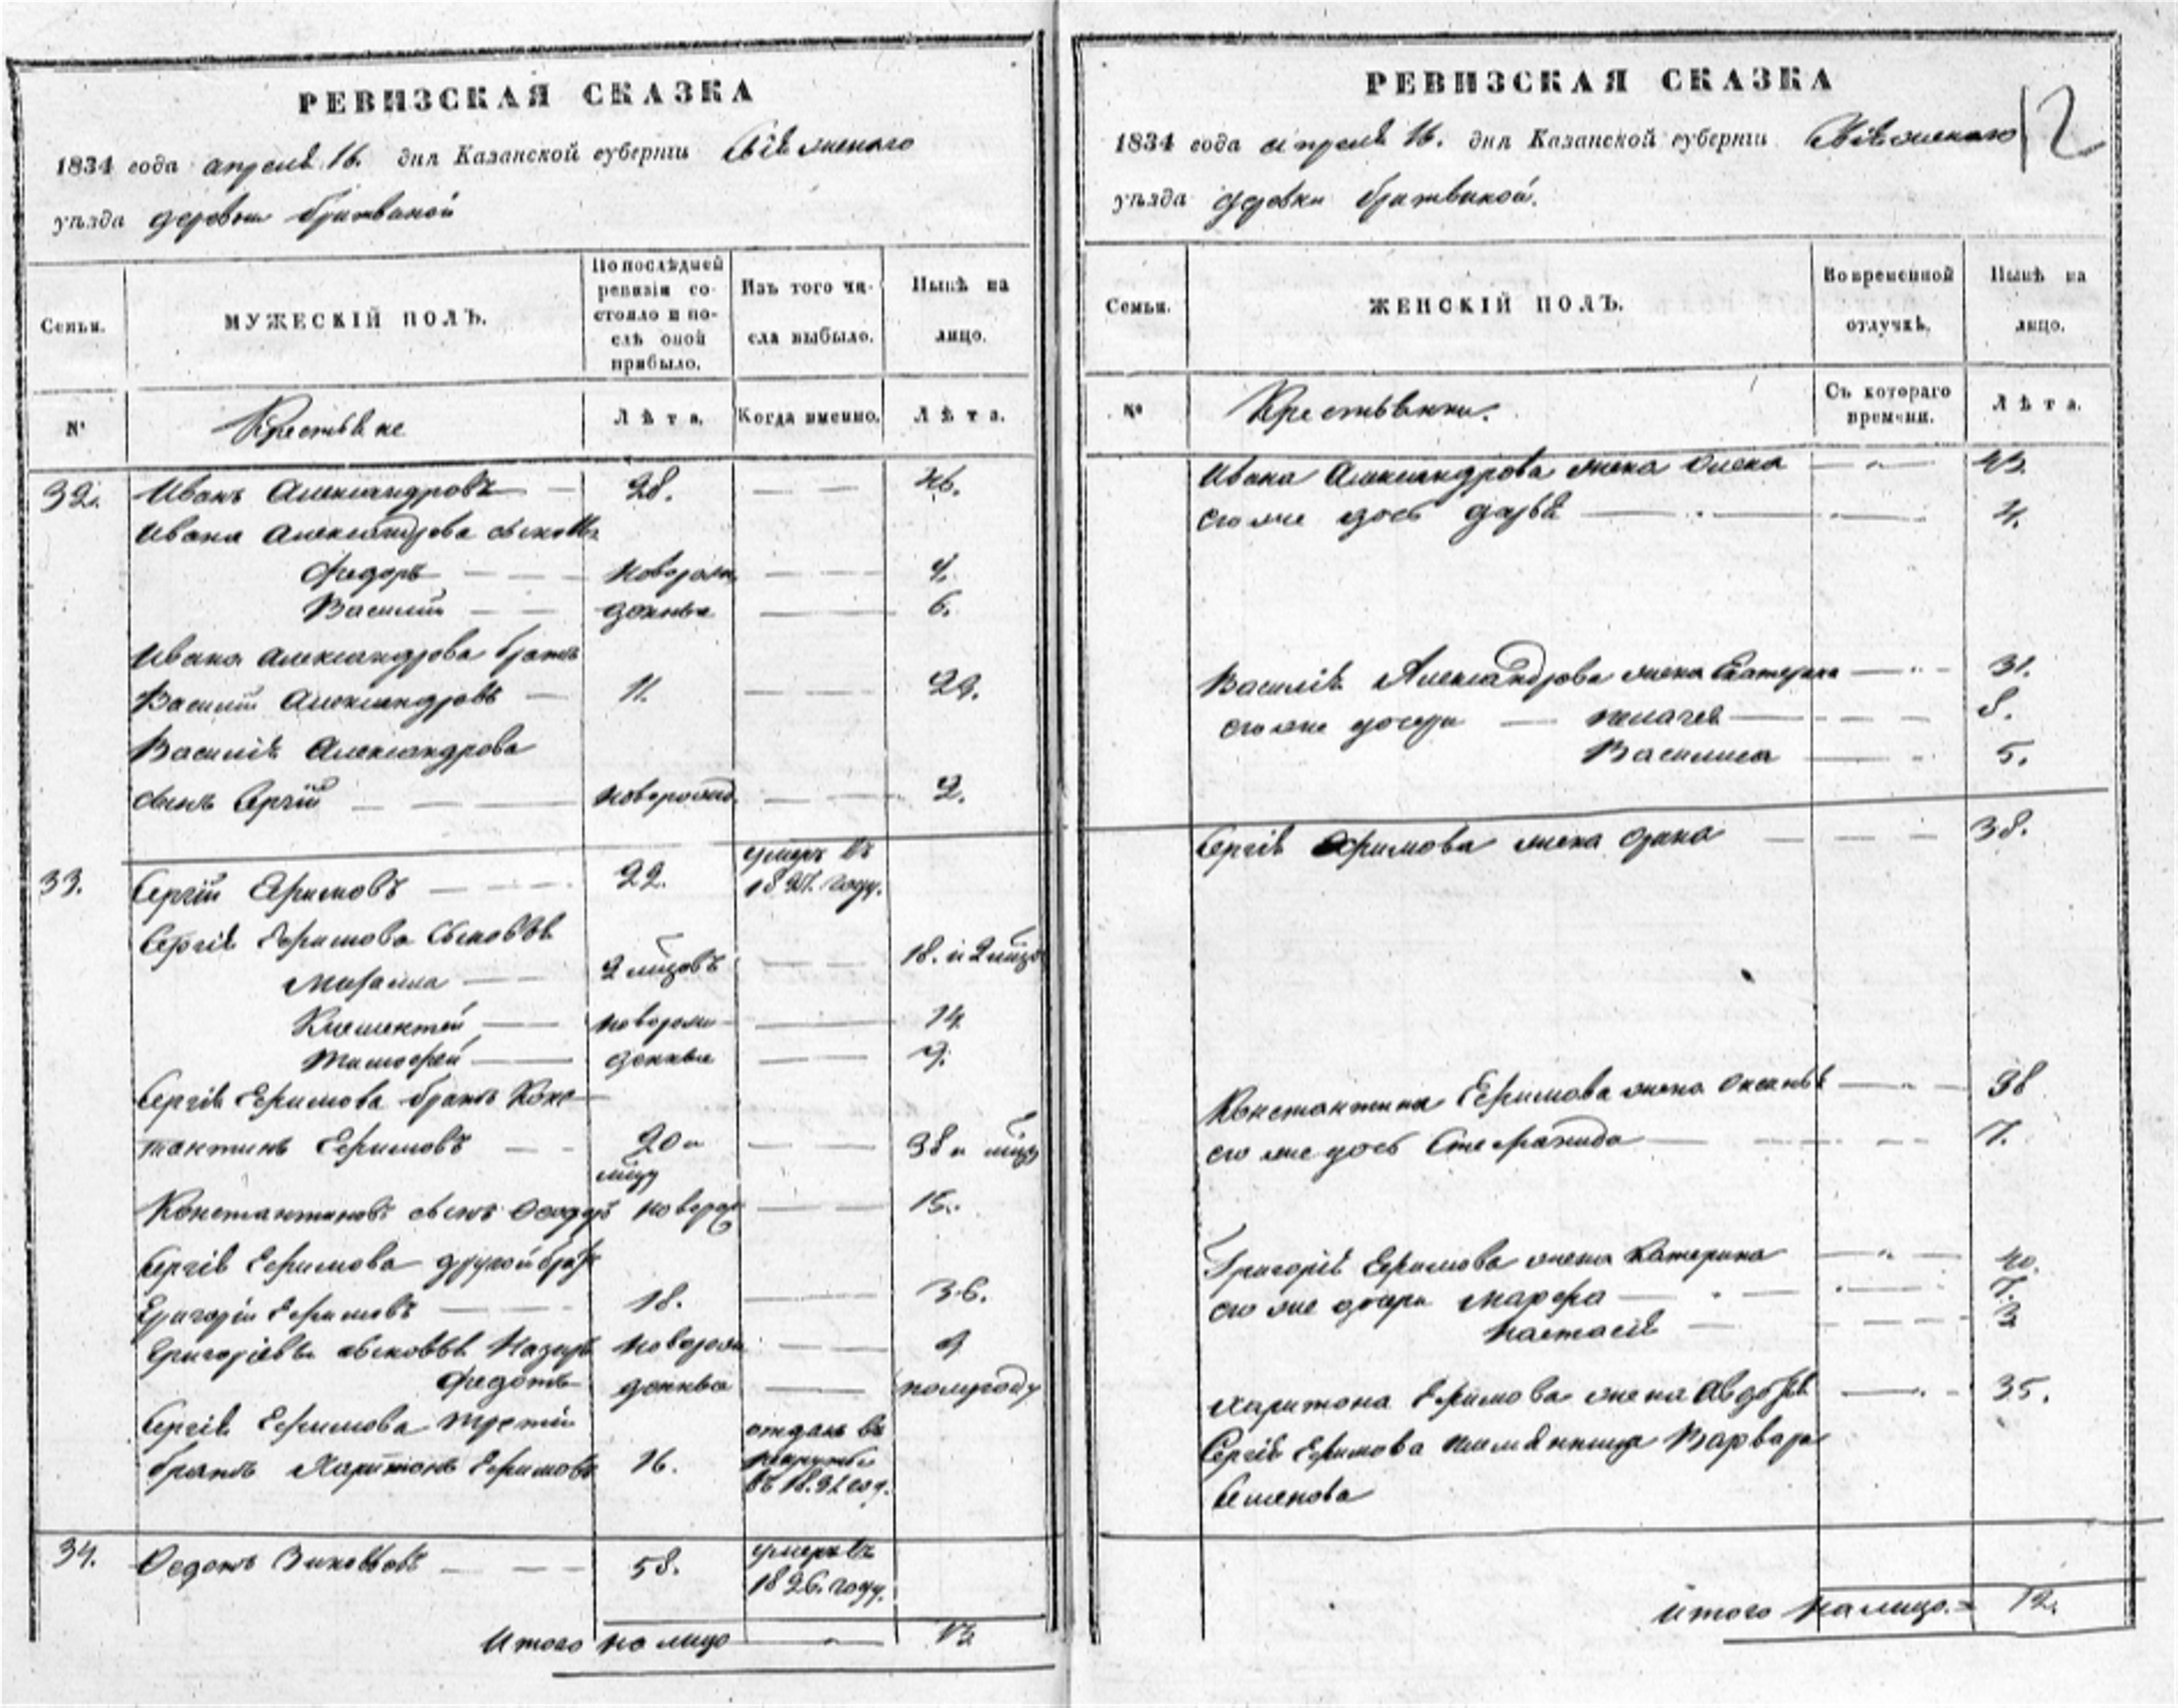 РЕВИЗСКАЯ СКАЗКА
1834 года апреля 16. дня Казанской губернiи Свiяжскаго
уѣзда деревни бритвиной
Семьи.
МУЖЕСКIЙ ПОЛЪ.
По послѣдней
ревизiи со-
стояло и по-
слѣ оной
прибыло.
Изъ того чи-
сла выбыло.
Нынѣ на
лицо.
№
Крестьяне
Лѣта.
Когда именно.
Лѣта.
32. Иванъ Александровъ 28. 46.
Ивана Александрова сыновья
Федоръ новорож
Василiй денные 6.
Ивана Александрова братъ
Василiй Александровъ 11. 29.
Василiя Александрова
сынъ Сергiй новорожд. 2.
33. Сергiй Ефимовъ 22. умеръ въ
году.
Сергiя Ефимова сыновья
Михаила 2 мцовъ 18. и 2 мцо
Клементей новорож 14
Тимофей денные 9.
Сергiя Ефимова братъ Конс
тантинъ Ефимовъ 20 и 38 и мцу
мцу
Константиновъ сынъ новорож 15.
Сергiя Ефимова другой братъ
Григорiй Ефимовъ 18. 36.
Григорiевы сыновья Назаръ новорож 9
Федотъ денные полугоду
Сергiя Ефимова третiй отданъ въ
братъ Харитонъ Ефимовъ 16. рекруты
въ 1832 год.
34. Федотъ Зиновьевъ 58. умеръ въ
1826. году.
Итого на лицо 13
РЕВИЗСКАЯ СКАЗКА
12
1834 года апреля 16. дня Казанской губернiи Свiяжскаго
уѣзда деревни бритвиной.
Семьи.
ЖЕНСКIЙ ПОЛЪ.
Во временной
отлучкѣ.
Нынѣ на
лицо.
№
Крестьянки.
Съ котораго
времени.
Лѣта.
Ивана Александрова жена Олена 43.
его же дочь дарья 4.
Василiя Александрова жена Екатерина 31.
его же дочери пелагея 8.
Василиса 5.
Сергiя Ефимова жена 38.
Константина Ефимова жена Оксинья 38
его же дочь Степанида 7.
Григорiя Ефимова жена Катерина 40.
его же дочери марфа 7.
настасiя 3
харитона Ефимова жена Авдотья 35.
Сергiя Ефимова племянница Варвара
Семенова
Итого на лицо. = 12.